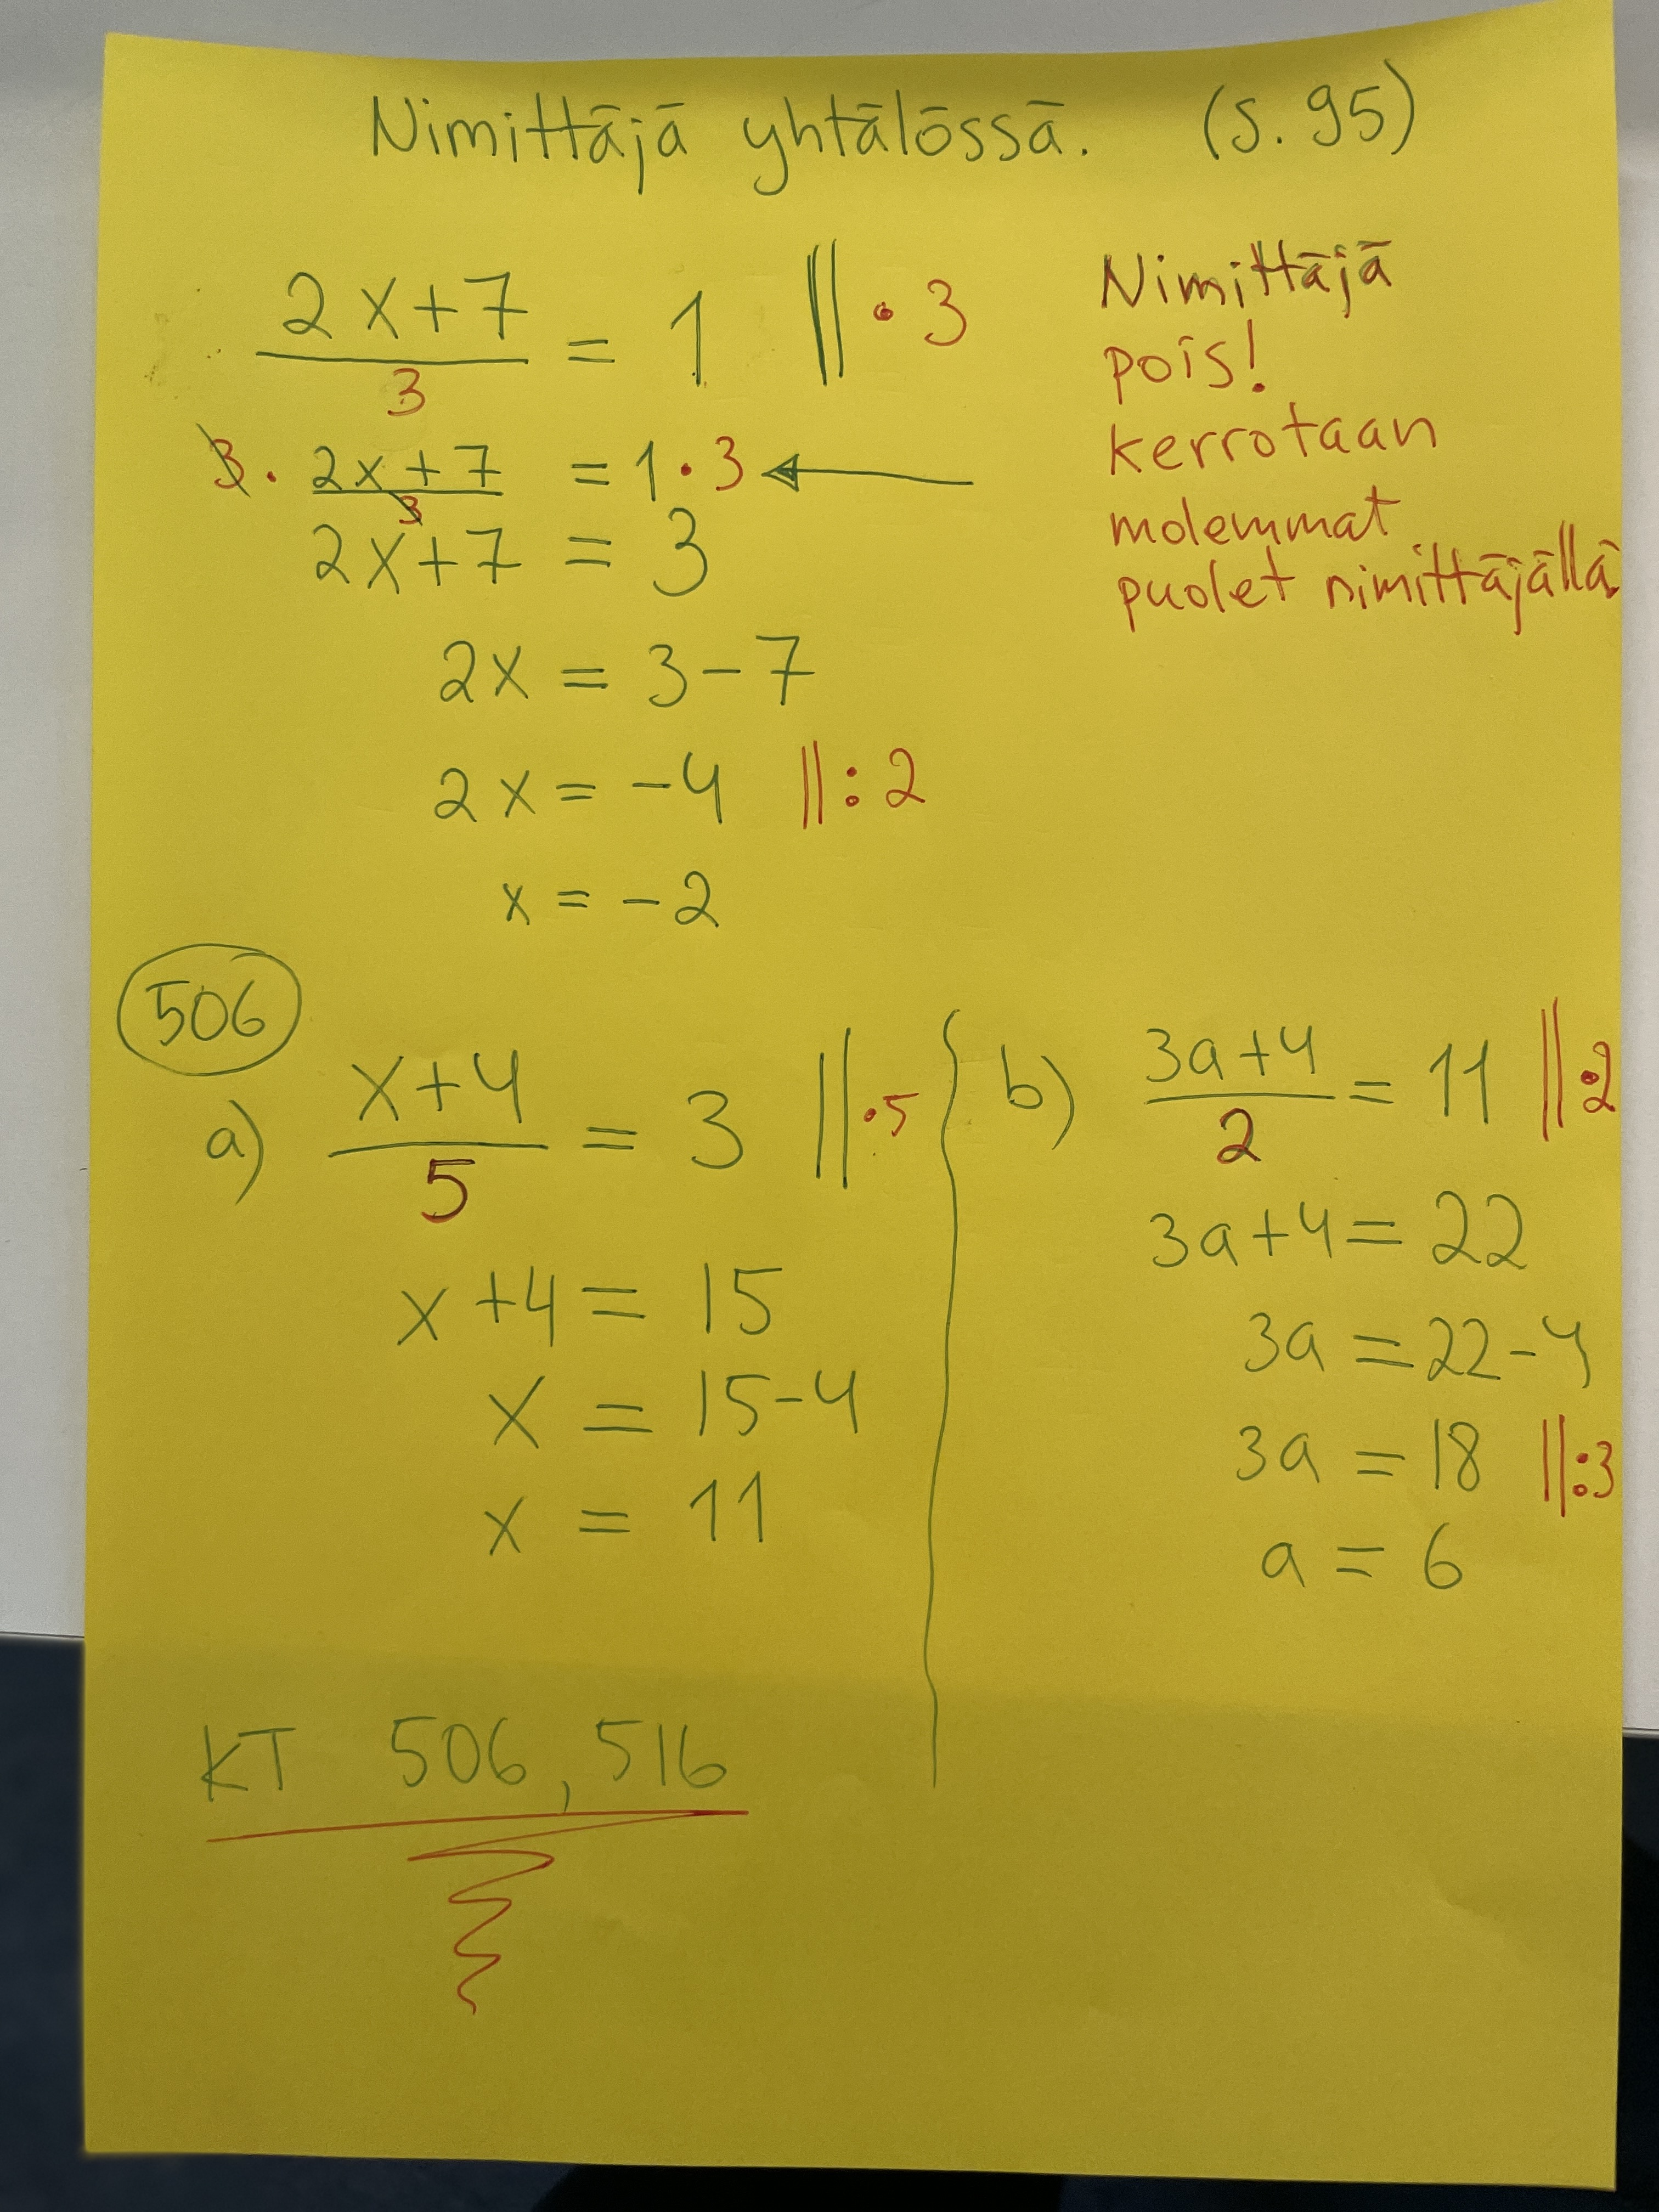 Nimittäjä yhtälössä. (s. 95)
(2x+7)/3 = 1 || · 3
Nimittäjä
pois!
kerrotaan
molemmat
puolet nimittäjällä
3 · (2x+7)/3 = 1 · 3
2x+7 = 3
2x = 3-7
2x = -4 ||: 2
x = -2
506
a) (x+4)/5 = 3 || ·5
x+4 = 15
x = 15-4
x = 11
b) (3a+4)/2 = 11 || ·2
3a+4 = 22
3a = 22-4
3a = 18 ||:3
a = 6
KT 506, 516